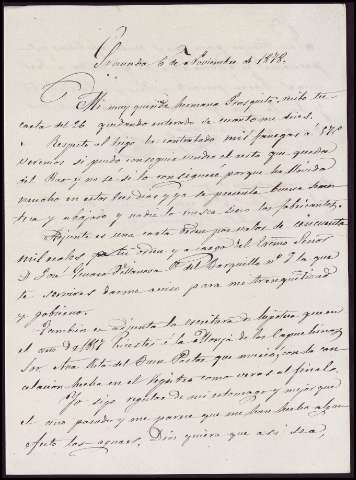 Granada 6 de Noviembre de 1878.
Mi muy querida hermana Frasquita: recibo tu
carta del 26 quedando enterado de cuanto me dices.
Respecto al trigo he contratado mil fanegas á 57 rs
veremos si puedo conseguir vender el resto que queda
del Duo y no sé si lo conseguiré porque ha llovido
mucho en estos tres dias y ya se presenta buena semen-
tera y abajará y nadie lo busca sino los fabricantes.
Adjunta es una carta orden por valor de cincuenta
mil reales á tu orden y á cargo del Exmo Señor
D. José Genaro Villanova Pza del Barquillo nº 7 la que
te servirás darme aviso para mi tranquilidad
y gobierno.
Tambien es adjunta la escritura de hipoteca que en
el año de 1817 hicistes á la Monja de las Capuchinas
Sor Ana Rita del Buen Pastor que murió, con la can-
celacion hecha en el registro como verás al final.
Yo sigo regular de mi estomago y mejor que
el año pasado y me parece que me han hecho algun
efecto las aguas. Dios quiera que asi sea,